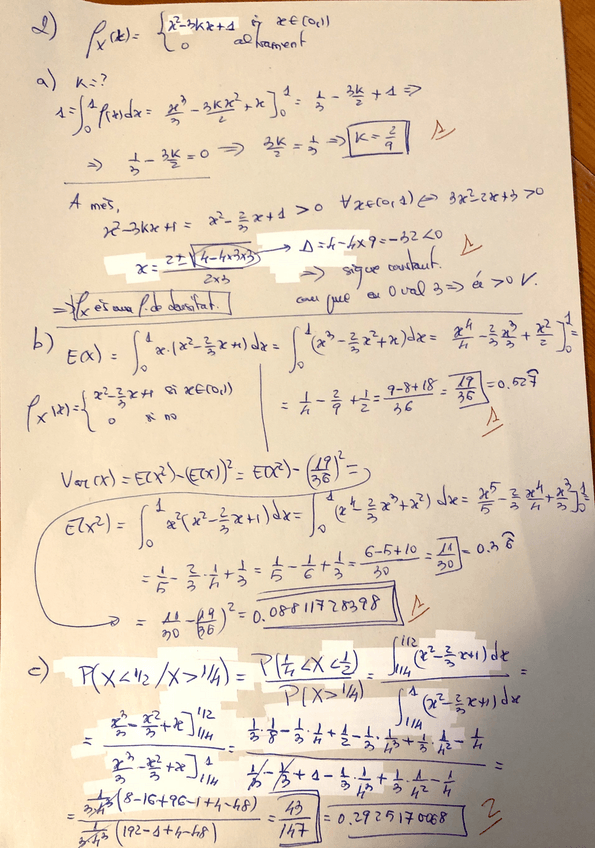 2) f_X(x) = { x²-3kx+1 si x∈(0,1)
0 altrament
a) K=?
1 = ∫₀¹ f(x)dx = x³/3 - 3kx²/2 + x ]₀¹ = 1/3 - 3k/2 + 1 ⇒
⇒ 1/3 - 3k/2 = 0 ⇒ 3k/2 = 1/3 ⇒ K = 2/9 1
A més,
x²-3kx+1 = x² - 2/3 x + 1 > 0 ∀x∈(0,1) ⇔ 3x²-2x+3 > 0
x = (2 ± √(4-4×3×3)) / (2×3) → Δ = 4-4×9 = -32 < 0 1
⇒ signe constant.
com que en 0 val 3 ⇒ és > 0 ∀.
⇒ f_X és una f. de densitat.
b) E(X) = ∫₀¹ x·(x² - 2/3 x + 1) dx = ∫₀¹ (x³ - 2/3 x² + x) dx = x⁴/4 - 2/3 x³/3 + x²/2 ]₀¹ =
f_X(x) = { x² - 2/3 x + 1 si x∈(0,1)
0 si no
= 1/4 - 2/9 + 1/2 = (9-8+18)/36 = 19/36 = 0.527̂ 1
Var(X) = E(X²) - (E(X))² = E(X²) - (19/36)² =
E(X²) = ∫₀¹ x²(x² - 2/3 x + 1) dx = ∫₀¹ (x⁴ - 2/3 x³ + x²) dx = x⁵/5 - 2/3 x⁴/4 + x³/3 ]₀¹ =
= 1/5 - 2/3 · 1/4 + 1/3 = 1/5 - 1/6 + 1/3 = (6-5+10)/30 = 11/30 = 0.36̂
= 11/30 - (19/36)² = 0.08811728398 1
c) P(X < 1/2 / X > 1/4) = P(1/4 < X < 1/2) / P(X > 1/4) = ∫_{1/4}^{1/2} (x² - 2/3 x + 1) dx / ∫_{1/4}^{1} (x² - 2/3 x + 1) dx =
= (x³/3 - x²/3 + x ]_{1/4}^{1/2}) / (x³/3 - x²/3 + x ]_{1/4}^{1}) = (1/3 · 1/8 - 1/3 · 1/4 + 1/2 - 1/3 · 1/4³ + 1/3 · 1/4² - 1/4) / (1/3 - 1/3 + 1 - 1/3 · 1/4³ + 1/3 · 1/4² - 1/4) =
= (1/(3·4³) (8-16+96-1+4-48)) / (1/(3·4³) (192-1+4-48)) = 43/147 = 0.2925170068 2